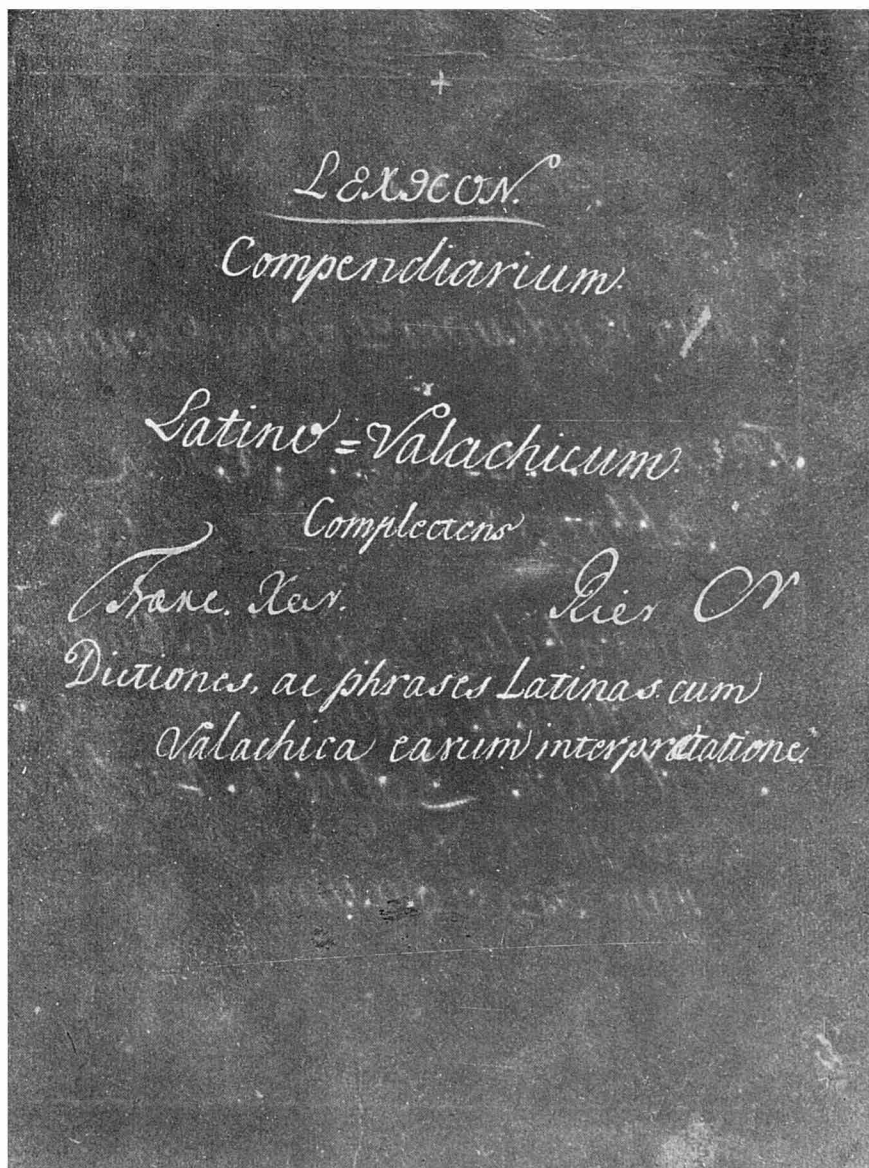 +
LEXICON.
Compendiarium.
Latino=Valachicum.
Complectens
Franc. Xav.
Dictiones, ac phrases Latinas cum
Valachica earum interpretatione.